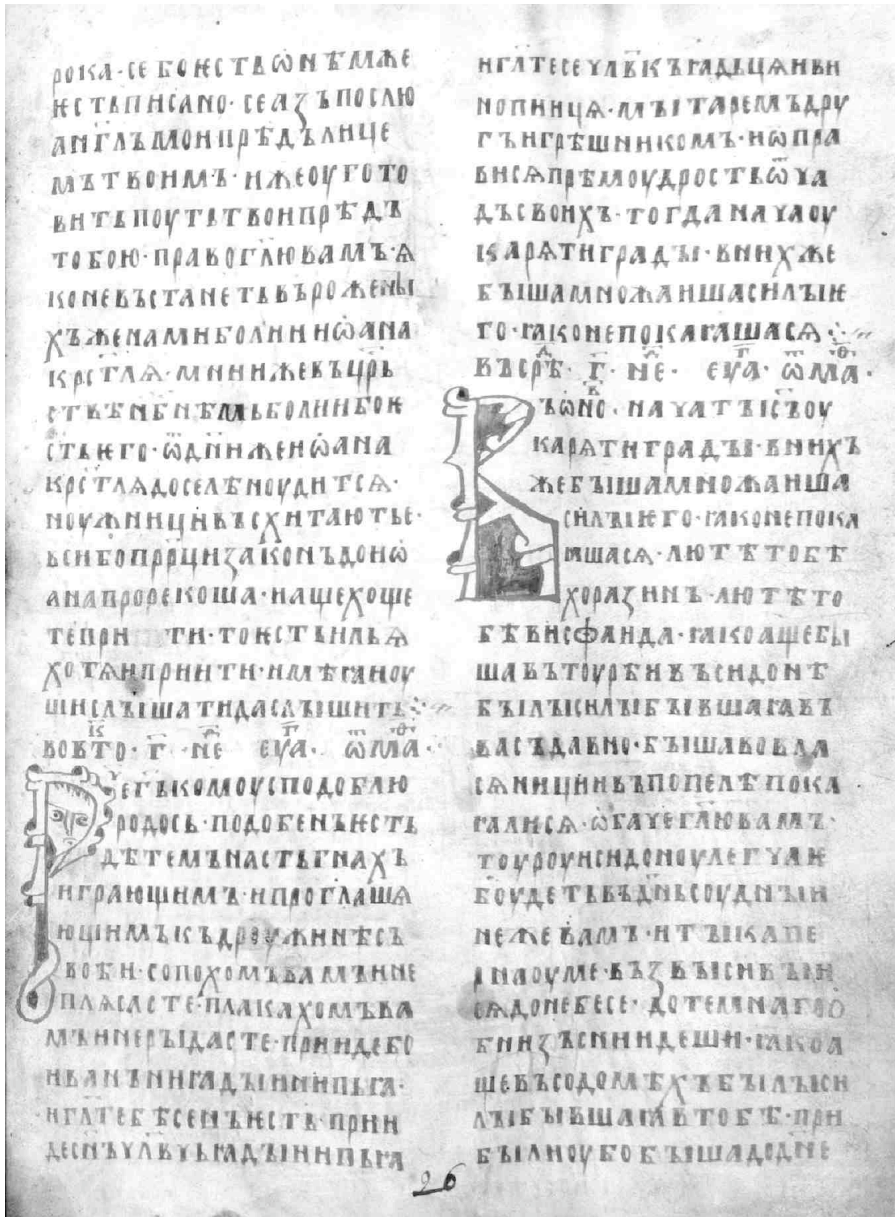 рока·себоѥстьѡнѣмже
ѥстьписано·сеазъпослю
англъмоипрѣдълице
мътвоимъ·ижеоугото
витьпоутьтвоипрѣдъ
тобою·правоглювамъ·ꙗ
коневъстанетьвърожены
хъженамиболииѡана
крстлѧ·мнииже
бок
стьѥго·ѿднииженѡана
крстлѧдоселѣноудитсѧ·
ноужницивъсхитаютье·
вьсибопррцизаконъдонѡ
анапророкоша·иащехоще
тепри ти·тоѥстьильꙗ
хотѧиприити·имѣꙗиоу
шислышатидаслышить
вовто·г҃·не еѵа·ѿма·
егькомоусподоблю
родось·подобенъѥсть
дѣтемънастьгнахъ
играющимъ·ипроглашѧ
ющимъкъдроужинѣсъ
воѥи·сопохомъвамъине
плѧсасте·плакахомъва
мъинерыдасте·приидебо
ниꙗдыинипьꙗ·
иглтебѣсенъѥсть·прии
деснъчлвчьꙗдыиипьꙗ
иглтесечлвкъꙗдьцѧиви
нопиица·мытаремъдру
гъигрѣшникомъ·иѡпра
висѧпрѣмоудростьѿча
дъсвоихъ·тогданачаоу
карѧтиграды·внихже
бышамножаишасилыѥ
го·ꙗконепокаꙗшасѧ
въсрѣ·г҃·не· еѵа·ѿма·
Въѡно·начатъісъоу
карѧтиграды·внихъ
жебышамножаиша
силыѥго·ꙗконепока
ꙗшасѧ·лютѣтобѣ
хоразинъ·лютѣто
бѣвисфаида·ꙗкоащебы
шавътоурѣивъсидонѣ
былысилыбывшаꙗвъ
васъдавно·бышавовла
сѧницииивъпопелѣпока
ꙗлисѧ·ѡбачеглювамъ·
тоуроуисидоноулегчаѥ
боудетьвъднъсоудныи
нежевамъ·итыкапе
рнаоуме·възвысивыи
сѧдонебесе·до
биизъснидеши·ꙗкоа
щевъсодомѣхъбылыси
лыбывшаꙗвтобѣ·при
былиоубобышадодне
26